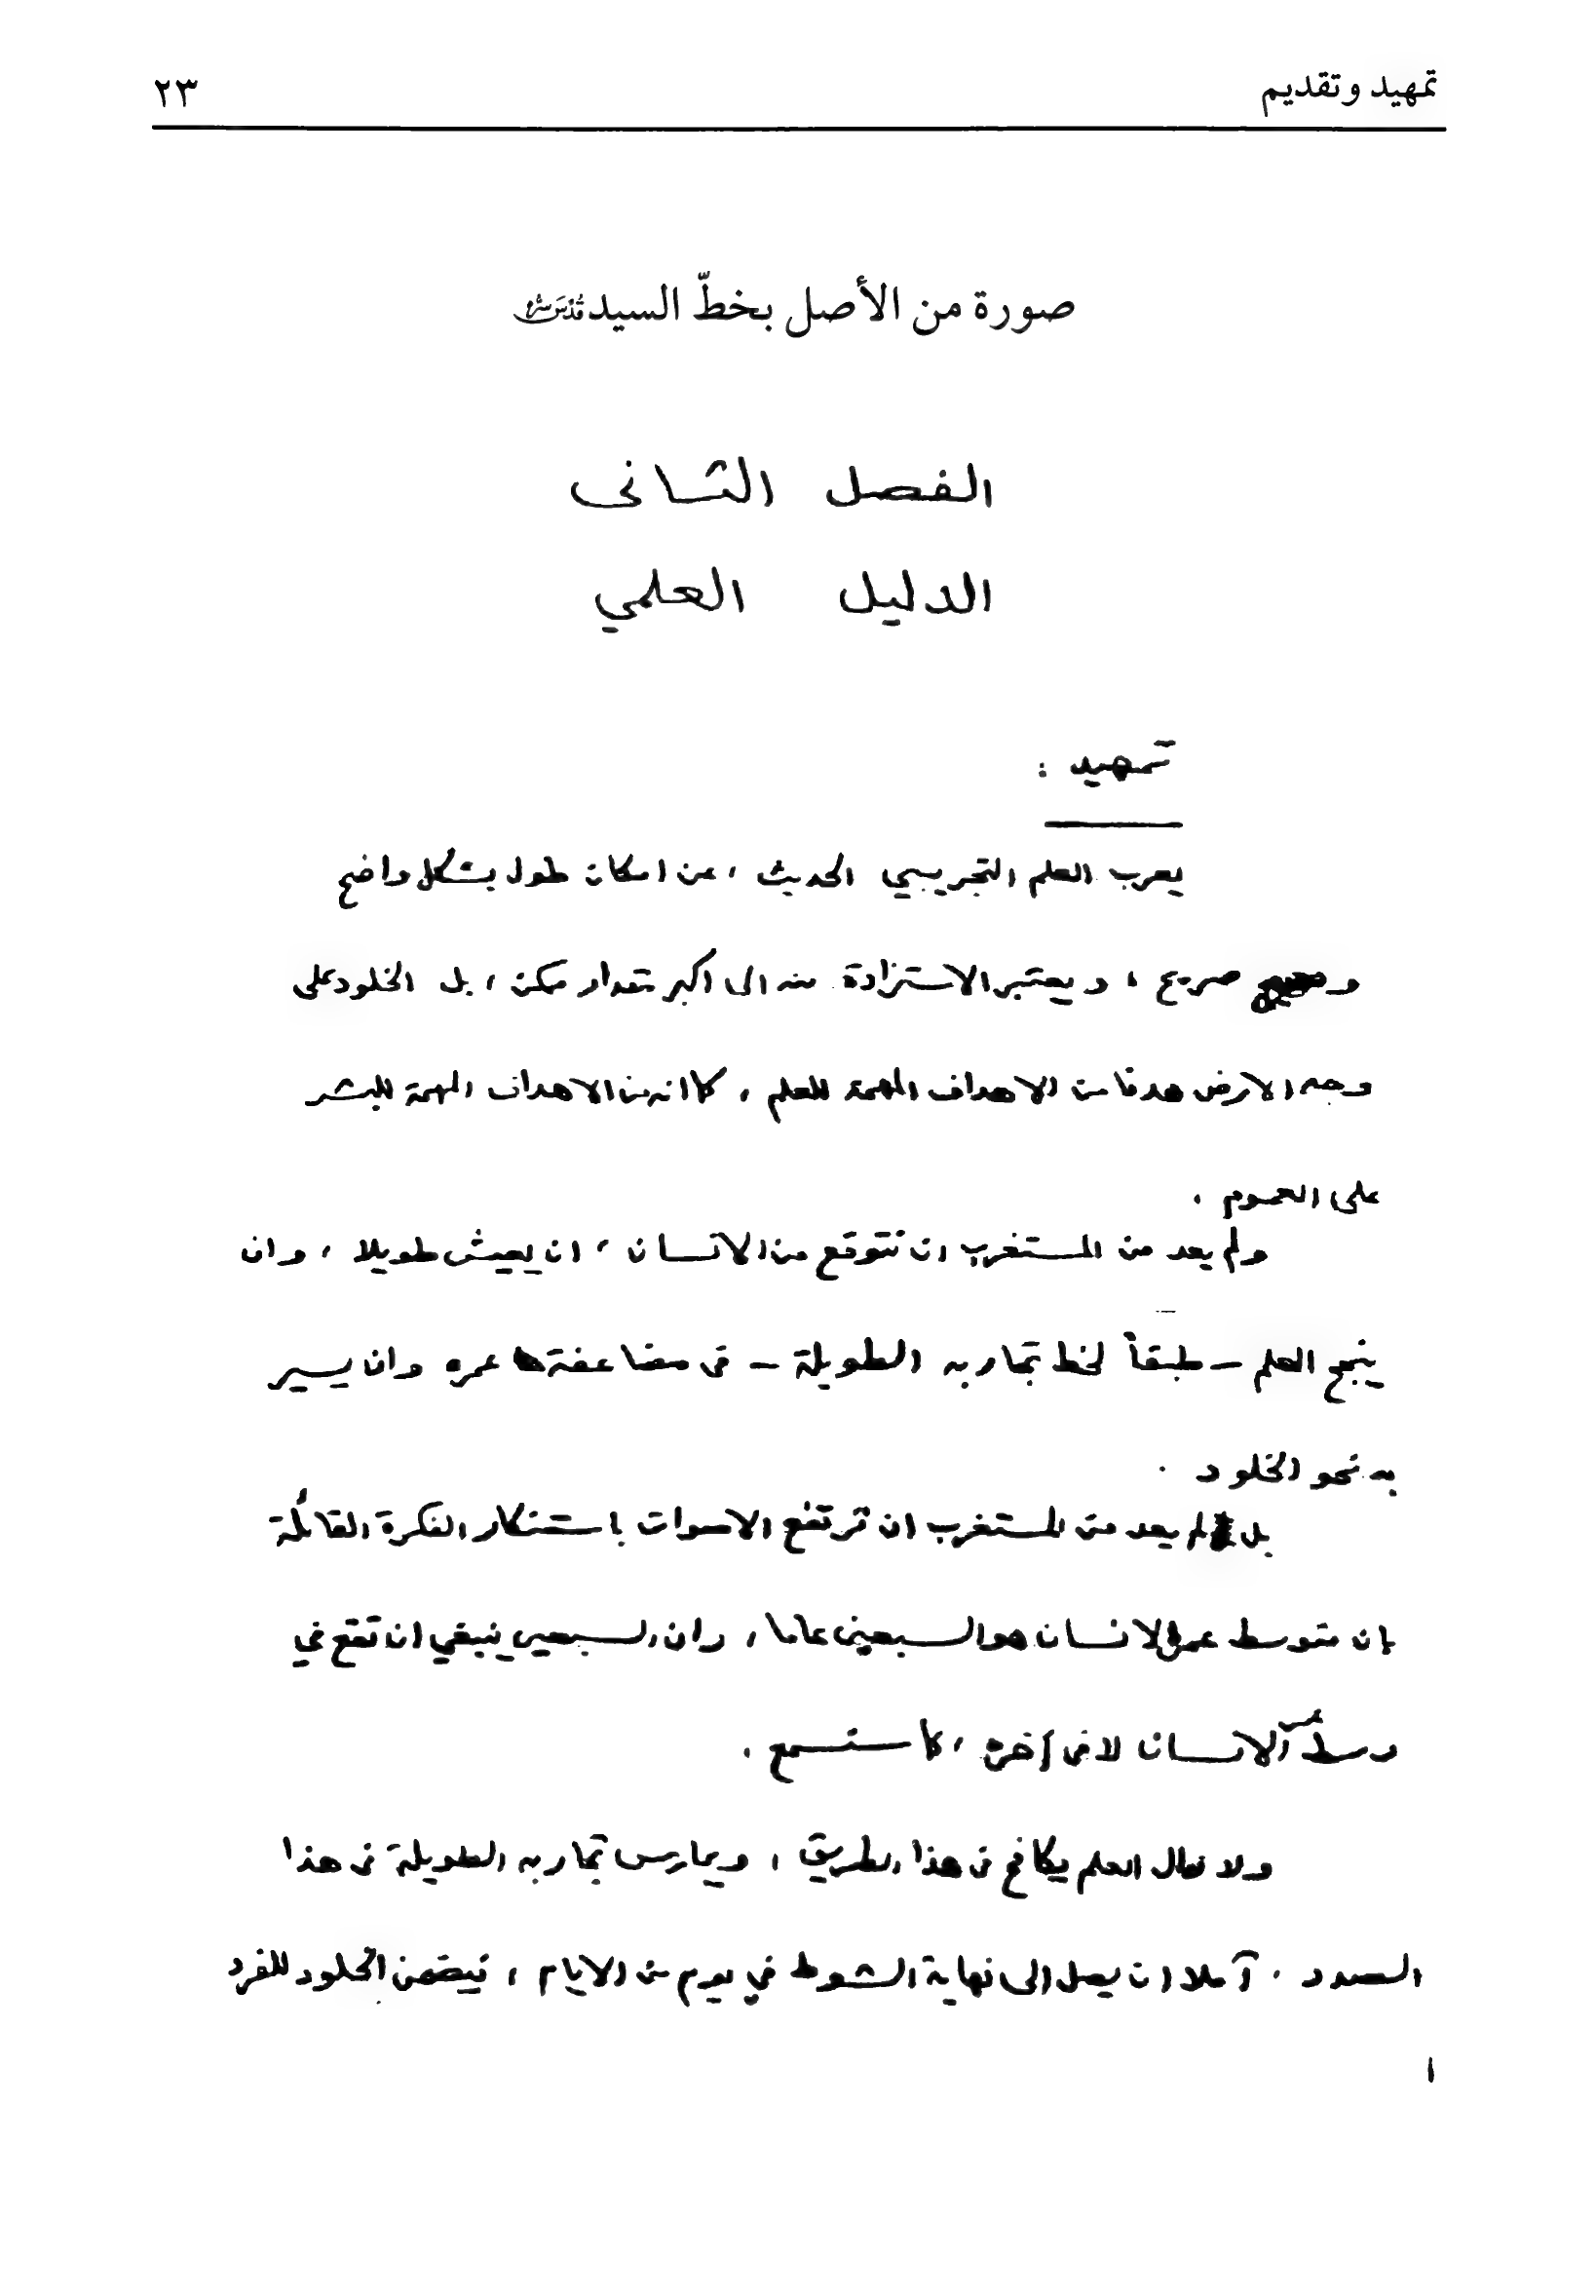 تمهيد وتقديم
٢٣
صورة من الأصل بخطّ السيد قدّس سرّه
الفصل الثانى
الدليل العلمي
تمهيد :
يعرب العلم التجريبي الحديث ، عن امكان طول بشكل واضح
و صريح ، ويعتبر الاستزادة منه الى اكبر مقدار ممكن ، بل الخلود على
وجه الارض هدفا من الاهداف المهمة للعلم ، كما انه من الاهداف المهمة للبشر
على العموم .
ولم يعد من المستغرب ان نتوقع من الانسان ، ان يعيش طويلا ، وان
ينجح العلم – طبقاً لخط تجاربه الطويلة – فى مضاعفة عمره وان يسير
به نحو الخلود .
بل لم يعد من المستغرب ان ترتفع الاصوات باستنكار الفكرة القائلة
بان متوسط عمر الانسان هو السبعين عاما ، وان السبعين ينبغي ان تقع في
وسط عمر الانسان لا فى آخره ، كما سنسمع .
ولا زال العلم يكافح فى هذا الطريق ، ويمارس تجاربه الطويلة فى هذا
الصدد . آملا ان يصل الى نهاية الشوط في يوم من الايام ، فيضمن الخلود للفرد
١